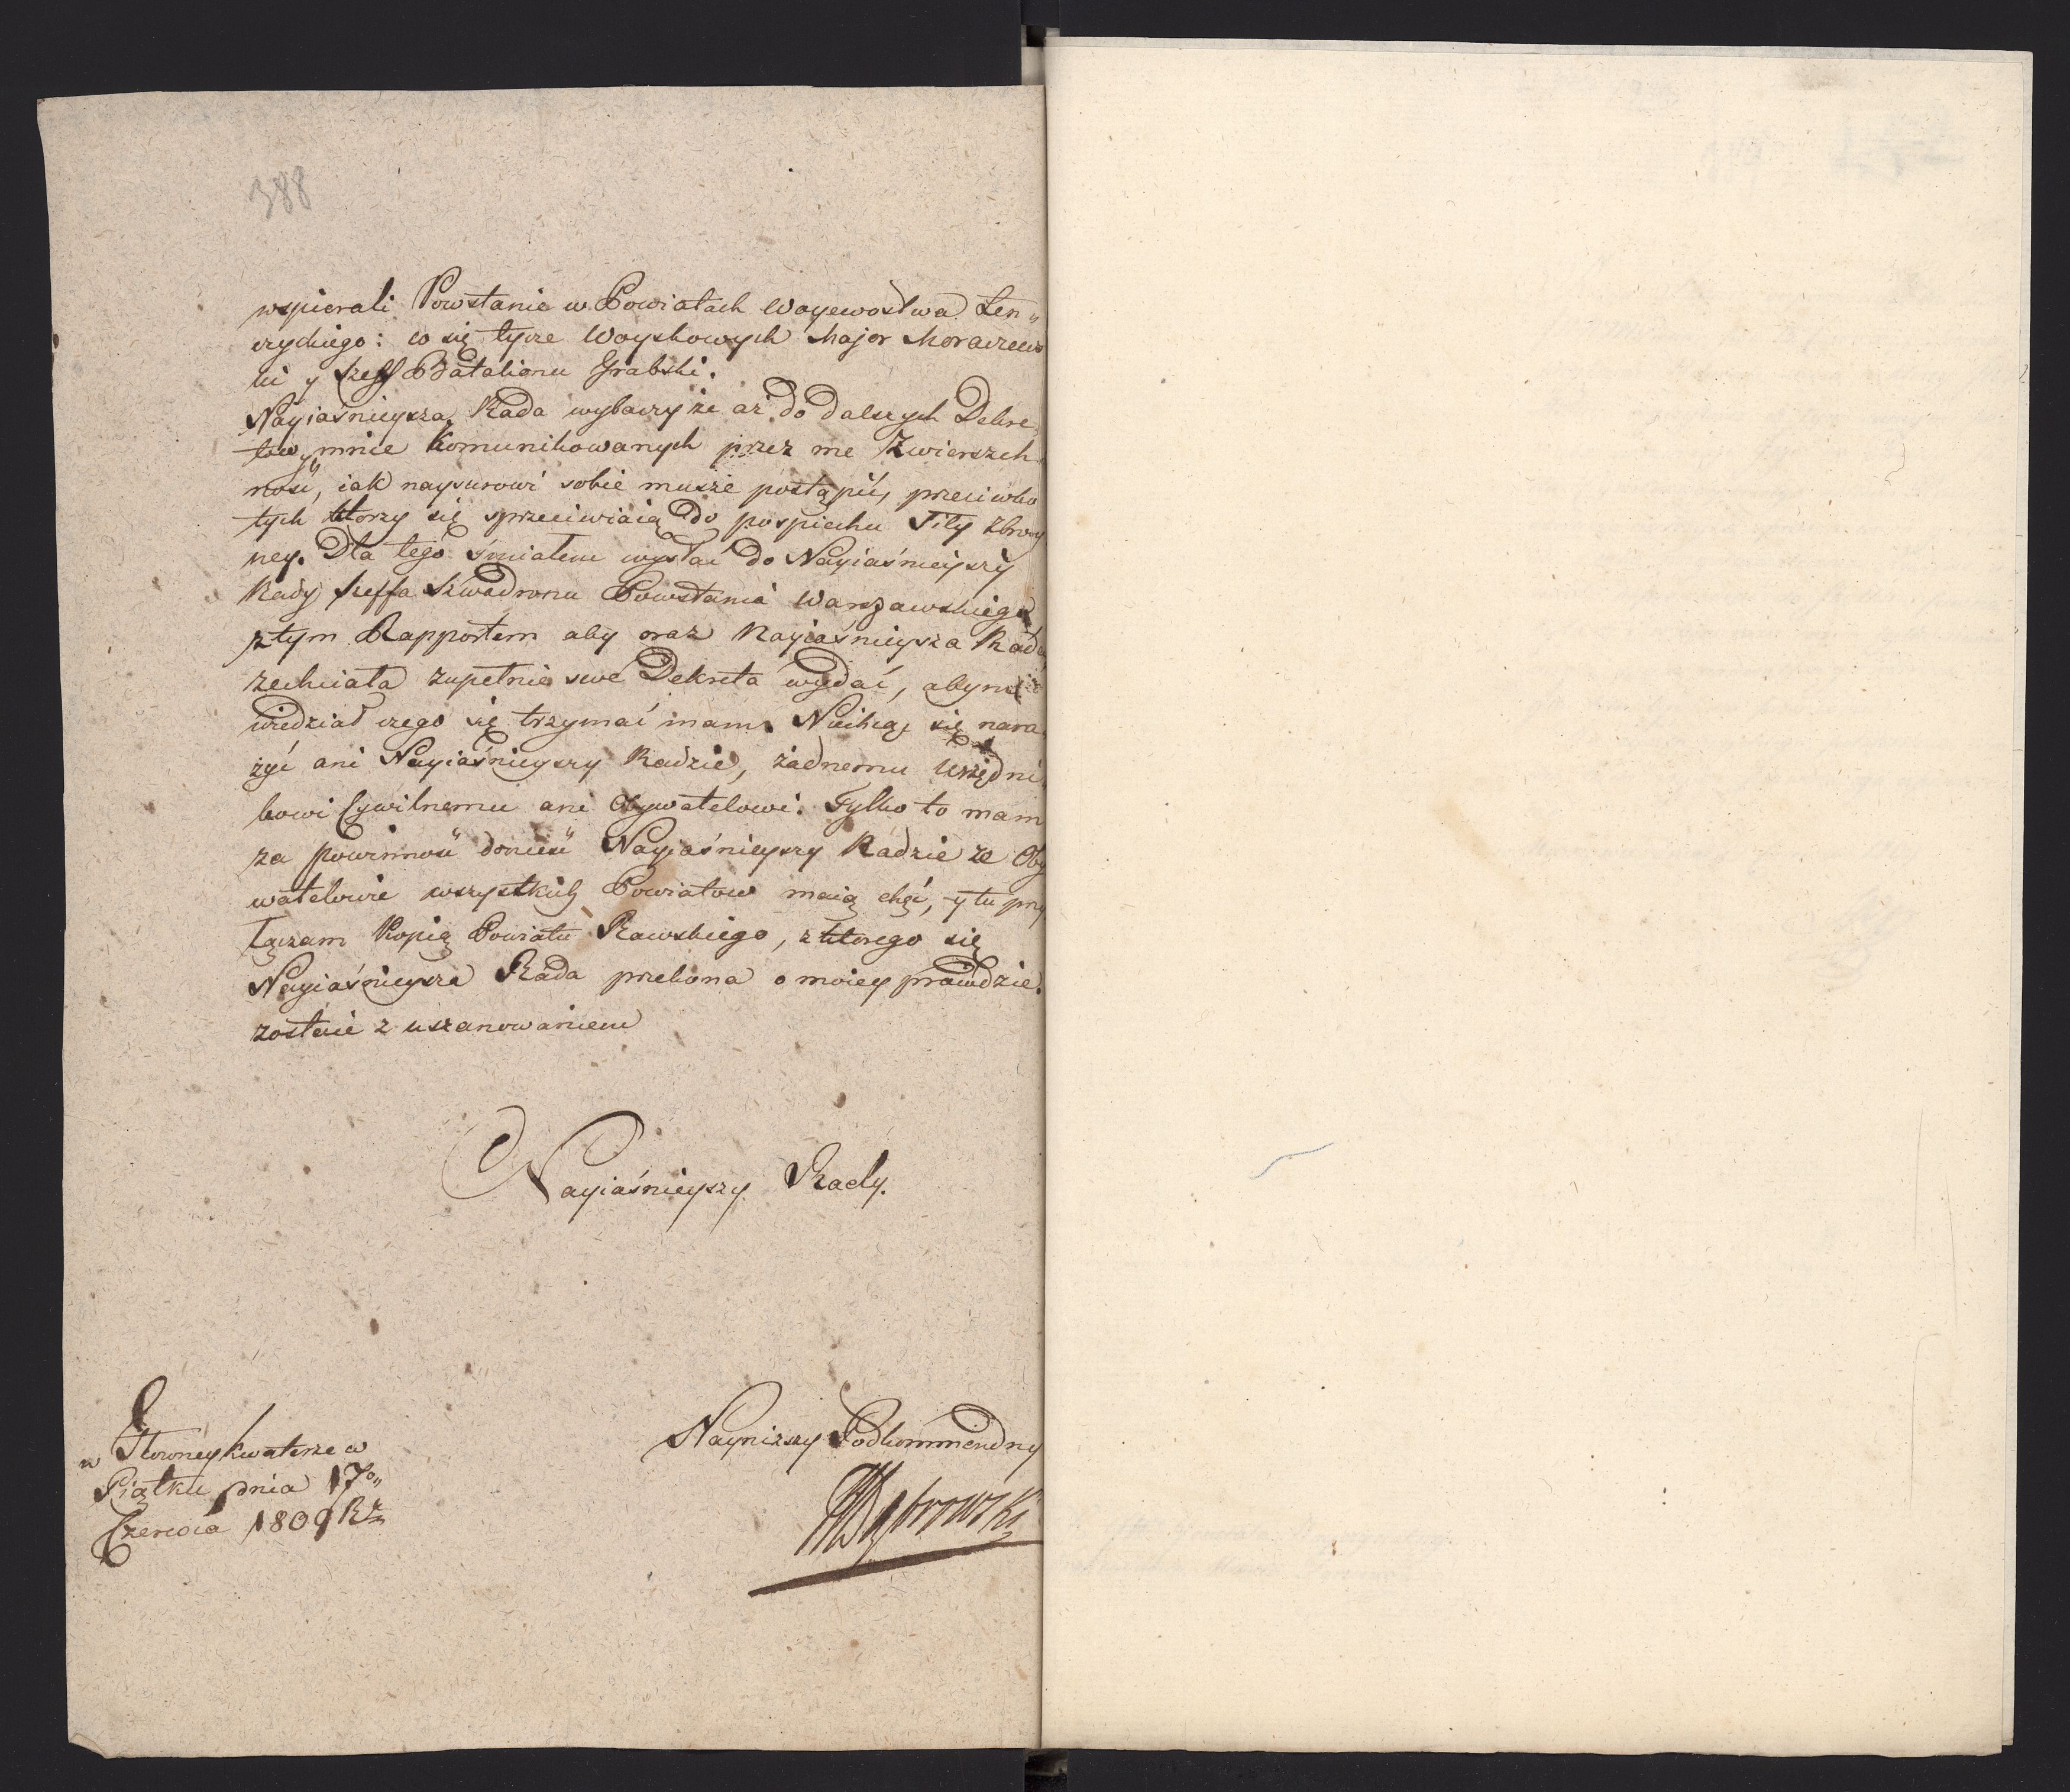 388
wspierali Powstanie w Powiatach Woyewostwa Łen„
czyckiego: co się tycze Woyskowych Major Moraczews
ki y Szeff Batalionu Grabski.
Nayiaśnieysza Rada wybaczy że aż do dalszych Dekre„
tow mnie Komunikowanych przez me Zwierszch„
ność, iak naysurowi sobie musze postąpić, przeciwko
tych ktorzy się sprzeciwiaią do pospiechu Siły Zbroy
ney. Dla tego śmiałem wysłać do Nayiaśnieyszy
Rady Szeffa Szwadronu Powstania Warszawskiego
z tym Rapportem aby oraz Nayiaśnieysza Rada
zechciała zupełnie swe Dekreta wydać, abym
wiedział czego się trzymać mam. Niechcąc się nara„
zyć ani Nayiaśnieyszy Radzie, żadnemu Urzędni„
kowi Cywilnemu ani Obywatelowi. Tylko to mam
za powinność donieść Nayiaśnieyszy Radzie ze Oby
watelowie wszystkich Powiatow maią chęć, y tu przy
łączam Kopią Powiatu Rawskiego, z ktorego się
Nayiaśnieysza Rada przekona o moiey prawdzie.
zostaie z uszanowaniem
Nayiaśnieyszy Rady.
w Głowney kwaterze w
Piątku dnia 17º„
Czerwca 1809 Rº
Nayniższy Podkommendny
HDąbrowski